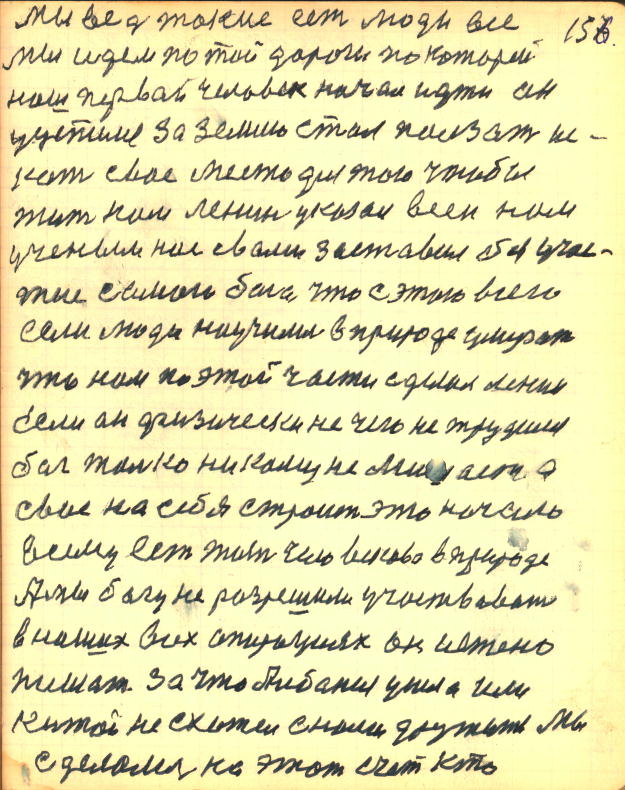 мы вед такие ест люди все 156.
мы идем по той дороги по которой
наш первай человек начал идти он
за землю стал ползат ис-
кат свое место для того чтобы
жит нам ленин указал всем нам
ученым нас свами заставил бы учас-
тие самого бога что с этого всего
если люди научилис в природе умират
что нам по этой части сделал ленин
если он физически не чего не трудился
бог толко никому не мишает а
свое на себя строит это начало
всему ест тот человек во в природе
А мы богу не разрешили участвават
в наших всех операциях он истено
пишат. За что Албания ушла или
китай не схотел снами дружит мы
сделались на этот счет кто